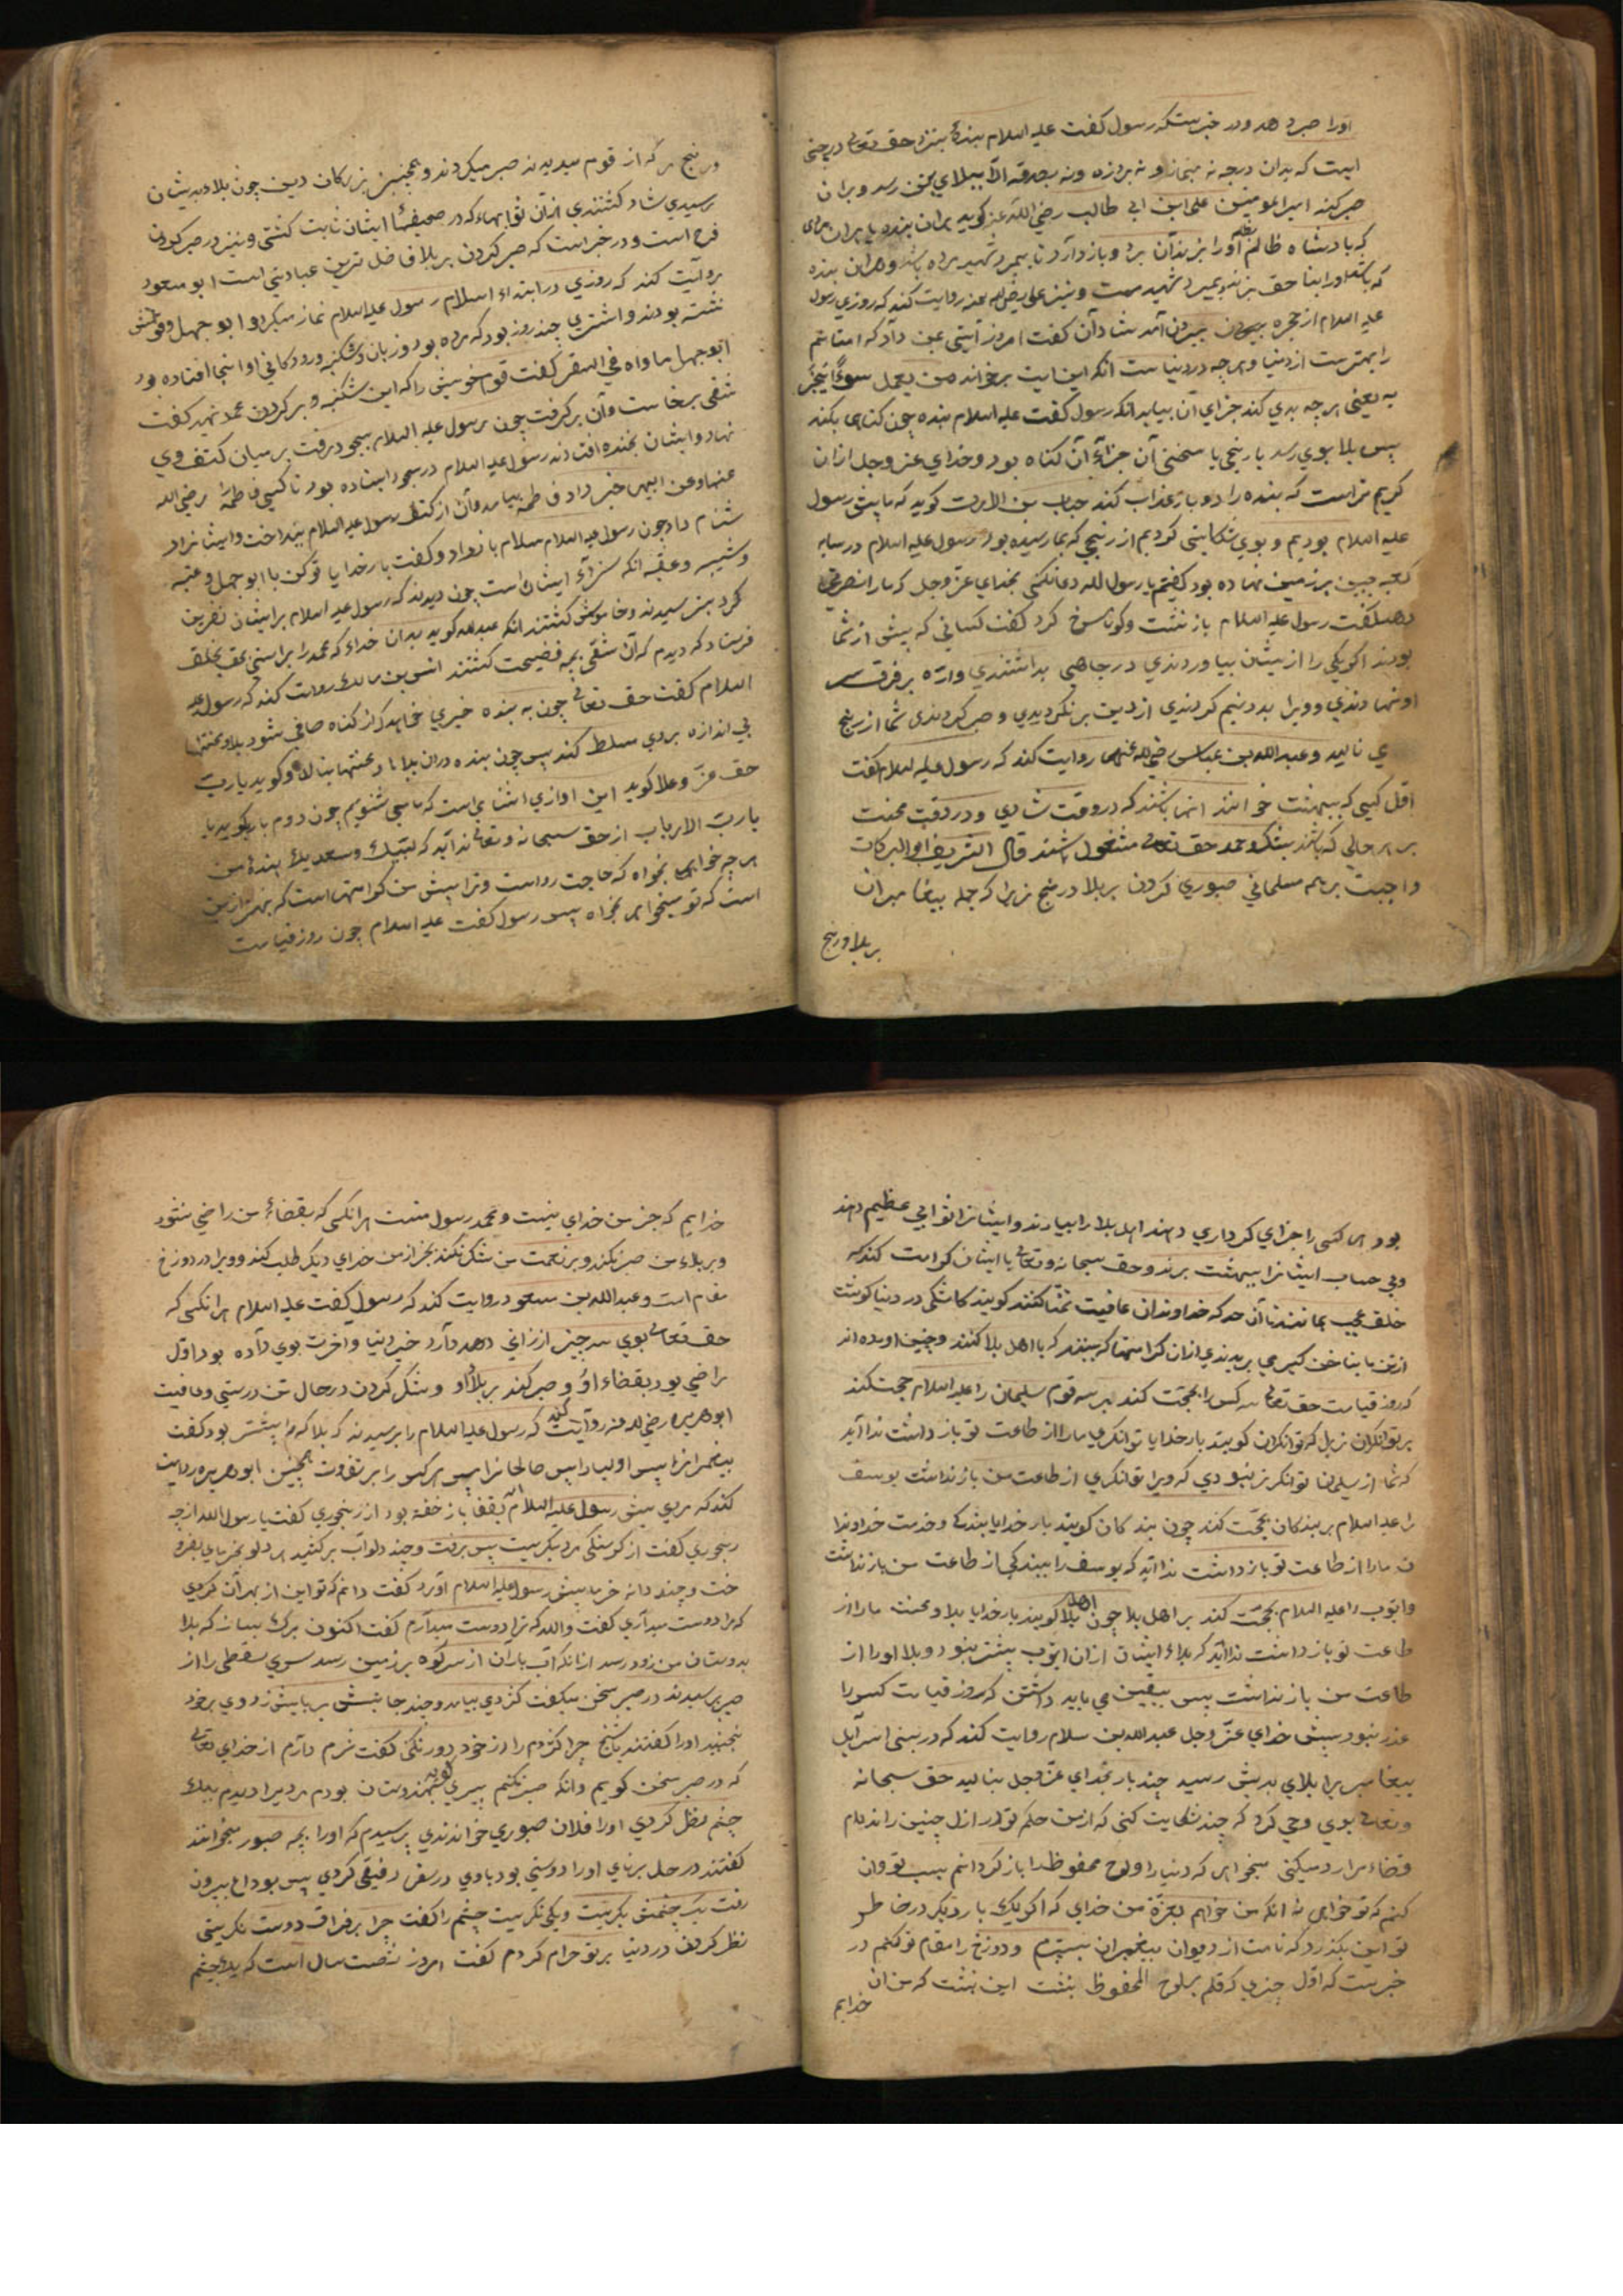 اورا صبر دهد ودر خبرستکه رسول کفت علیه السلام بندۀ بنزد حق تعالی درجتی
است که بدان درجه نه بنماز ونه بروزه ونه بصدقه الّا ببلای بتن رسد وبران
صبر کند امیر المومنین علی ابن ابی طالب رضی اللّه عنه کوید بدان بنده یا بران مردی
که بادشاه ظالم اورا بزندان برد وباز دارد تا بمیرد شهید مرده باشد وهران بنده
که باشد اورا بنا حق بزنند وبمیرد شهید ست ونیز علی رضی الله عنه روایت کند که روزی رسول
علیه السلام از حجره بیرون آمد شادان کفت امروز آیتی بمن داد که امتانم
را بهترست از دنیا وهرچه در دنیاست انکه این ایت برخواند من یعمل سوءًا یجز
به یعنی هر چه بدی کند جزای آن بیابد انکه رسول کفت علیه السلام بنده چون کناهی بکند
پس بلا بوی رسد یا رنجی یا سختی آن جزآء آن کناه بود وخدای عز وجل ازان
کریم تراست که بنده را دو بار عذاب کند خباب بن الارت کوید که ما پیش رسول
علیه السلام بودیم وبوی شکایتی کردیم از رنجی که بما رسیده بود رسول علیه السلام در سایه
کعبه جبین بر زمین نهاده بود کفتیم یا رسول الله دعا نکنی بخدای عز وجل که مارا نصرتی
دهد کفت رسول علیه السلام باز نشست وکونا سرخ کرد کفت کسانی که پیش از شما
بودند اکر یکی را ازیشان بیاوردندی در جاهی بداشتندی واره بر فرق سر
او نهادندی وویرا بدو نیم کردندی از دین بر نکردیدی وصبر کردندی شما از رنج
می نالید وعبد الله بن عباس رضی الله عنهما روایت کند که رسول علیه السلام کفت
اوّل کسی که ببهشت خوانند انها باشند که در وقت شادی ودر وقت محنت
بر هر حالی که باشند بشکر وحمد حق تعالی مشغول باشند قال الشریف ابو البرکات
واجبست بر همه مسلمانی صبوری کردن بر بلا ورنج زیرا که جمله بیغامبران
بر بلا ورنج
ورنج هر که از قوم میدیدند صبر میکردند وهمچنین بزرکان دین چون بلا بدیشان
برسیدی شاد کشتندی ازان ثوابها که در صحیفهٔا ایشان ثابت کشتی ونیز در صبر کردن
فرح است ودر خبر است که صبر کردن بر بلا فاضل ترین عبادتی است ابو مسعود
روایت کند که روزی در ابتداء اسلام رسول علیه السلام نماز میکرد وابو جهل وقومش
نشسته بودند واشتری چند روز بود که مرده بود وزبان وشکنبه ورودکانی او انجا افتاده بود
ابو جهل ماواه فی السقر کفت قوم خویش را که این شکنبه بر کردن محمد نهید کفت
شقی برخاست وآن بر کرفت چون رسول علیه السلام بسجود رفت بر میان کتف وی
نهاد وایشان بخنده افتادند رسول علیه السلام در سجود ایستاده بود تا کسی فاطمه رَا رضی الله
عنها وعن ابیها خبر داد فاطمه بیامد وآن از کتف رسول علیه السلام بینداخت وایشانرا
شنام داد چون رسول علیه السلام سلام باز داد وکفت بار خدایا تو کن با ابو جهل وعتبه
وشیبه وعقبه انکه سزآء ایشان است چون دیدند که رسول علیه السلام بر ایشان نفرین
کرد بترسیدند وخاموش کشتند انکه عبد الله کوید بدان خداء که محمد را براستی بحق بخلق
فرستاد که دیدم که آن شقی همه فضیحت کشتند انس بن مالک روایت کند که رسول علیه
السلام کفت حق تعالی چون به بنده خیری خواهد که از کناه صافی شود بلا ومحنتها
بی اندازه بر وی مسلط کند پس چون بنده دران بلاها ومحنتها بنالد وکوید یا رب
حق عزّ وعلا کوید این اوازی اشنایی است که ما می شنویم چون دوم بار بکوید یا
یا ربّ الارباب از حق سبحانه وتعالی ندا آید که لبّیک وسعدیک بندۀ من
هر چه خواهی بخواه که حاجت رواست وترا پیش من کرامتهاست که بهتر ازین
است که تو میخواهی بخواه پس رسول کفت علیه السلام چون روز قیامت
بود هر کسی را جزای کرداری دهند اهل بلا را بیارند وایشانرا ثوابی عظیم دهند
وبی حساب ایشانرا ببهشت برند وحق سبحانه وتعالی با ایشان کرامت کند که
خلق عجب بمانند تا آن حد که خداوندان عافیت تمنّا کنند کویند کاشکی در دنیا کوشت
از تن ما بناخن کیر می بریدندی ازان کرامتها که بینند که با اهل بلا کنند وچنین اورده اند
که روز قیامت حق تعالی سه کس را بحجّت کند بر سه قوم سلیمان را علیه السلام حجت کند
بر توانکران زیرا که توانکران کویند بار خدایا توانکری مارا از طاعت تو باز داشت ندا آید
که شما از سلیمان توانکرتر نبودی که ویرا توانکری از طاعت من باز نداشت یوسف
را علیه السلام بر بندکان بحجّت کند چون بندکان کویند بار خدایا بندکی وخدمت خداوندا
ن مارا از طاعت تو باز داشت ندا آید که یوسف را بندکی از طاعت من باز نداشت
وایّوب را علیه السلام بحجّت کند بر اهل بلا چون اهل بلا کویند بار خدایا بلا ومحنت مارا از
طاعت تو باز داشت ندا آید که بلاء ایشان ازان ایّوب بیشتر نبود وبلا اورا از
طاعت من باز نداشت پس بیقین می باید داشتن که روز قیامت کس را
عذر نبود پیش خدای عزّ وجل عبد الله بن سلام روایت کند که در بنی اسرآیل
بیغامبریرا بلای بدیش رسید چند بار بخدای عزّ وجل بنالید حق سبحانه
وتعالی بوی وحی کرد که چند شکایت کنی که از من حکم تو در ازل چنین راندام
قضاء مرا رد میکنی میخواهی که دنیا را ولوح محفوظ را باز کردانم بسبب تو وان
کنم که تو خواهی نه انکه من خواهم بعزّة من خدای که اکر یک بار دیکر در خاطر
تو این بکذرد که نامت از دیوان بیغمبران بسترم ودوزخ را مقام تو کنم در
خبرست که اوّل چیزی که قلم بر لوح المحفوظ بنشت این بنشت که من ان
خدایم
خدایم که جز من خدای نیست ومحمد رسول منست هر انکسی که بقضآء من راضی نشود
وبر بلاء من صبر نکند وبر نعمت من شکر نکند بجز از من خدای دیکر طلب کند وویرا در دوزخ
مقام است وعبد الله بن مسعود روایت کند که رسول کفت علیه السلام هر انکسی که
حق تعالی بوی سه چیز ارزانی دهد دآرد خیر دنیا واخرت بوی دآده بود اوّل
راضی بود بقضاء او وصبر کند بر بلاء او وشکر کردن در حال تن درستی وعافیت
ابو هریره رضی الله عنه روآیت کند که رسول علیه السلام را برسیدند که بلا که را بیشتر بود کفت
بیغمبرانرا پس اولیا را پس صالحانرا پس هر کس را بر تفاوت همچنین ابو هریره روایت
کند که مردی پیش رسول علیه السلام بقفا باز خفته بود از رنجوری کفت یا رسول الله از چه
رنجوری کفت از کرسنکی مرد بکریست پس برفت وچند دلو آب برکشید هر دلو بخرمای بفرو
خت وچند دانه خرید پیش رسول علیه السلام آورد کفت دانم که تو این از بهر آن کردی
که مرا دوست میداری کفت والله که ترا دوست میدآرم کفت اکنون برک بساز که بلا
بدوستان من زود رسد ازانکه آب باران از سر کوه بر زمین رسد سری سقطی را از
صبر برسیدند در صبر سخن میکفت کزدمی بیامد وچند جا نیش بر پایش زد وی بر خود
نجنبید اورا کفتند یا شیخ چرا کزدم را از خود دور نکنی کفت شرم دآرم از خدای تعالی
که در صبر سخن کویم وانکه صبر نکنم پیری کوید بهندوستان بودم مردی را دیدم بیک
چشم نظر کردی اورا فلان صبوری خواندندی پرسیدم که اورا بچه صبور میخوانند
کفتند در حال برنای اورا دوستی بود با وی در سفر رفیقی کردی پس بوداع بیرون
رفت یک چشمش بکریست ویکی نکریست چشم را کفت چرا بر فراق دوست نکریستی
نظر کردن در دنیا بر تو حرام کردم کفت امروز شصت سال است که بدان چشم